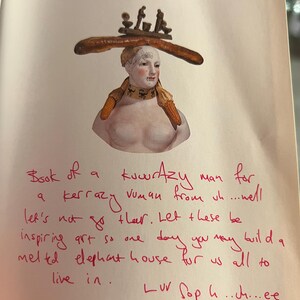 Book of a kuwrAzy man for
a kerrazy vuman from uh...well
let's not go ther. Let these be
inspiring art so one day you may build a
melted elephant house for us all to
live in.
Luv Sop h...uh...ee